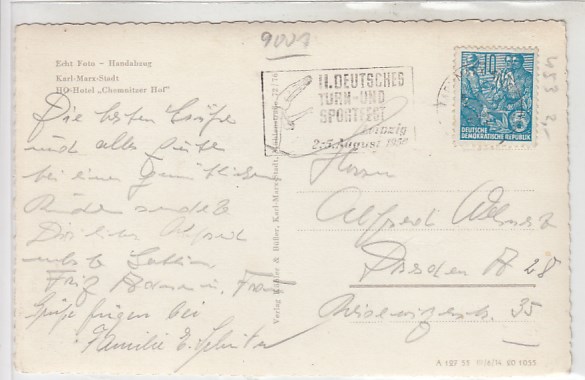 9001
Echt Foto – Handabzug
Karl-Marx-Stadt
HO-Hotel „Chemnitzer Hof"
II. DEUTSCHES
TURN- UND
SPORTFEST
Leipzig
2.-5. August 195
10
DEUTSCHE
DEMOKRATISCHE REPUBLIK
453
2,-
Die besten Grüße
und alles Gute
bei einer gemütlichen
sendet
Dir lieber Alfred
nebst Gattin
Fritz u. Frau
Grüße fügen bei
Familie E.
Herrn
Alfred
Dresden A 28
35
Verlag & Büßer, Karl-Marx-Stadt, 72/76
A 127 55 III/6/14 60 1055